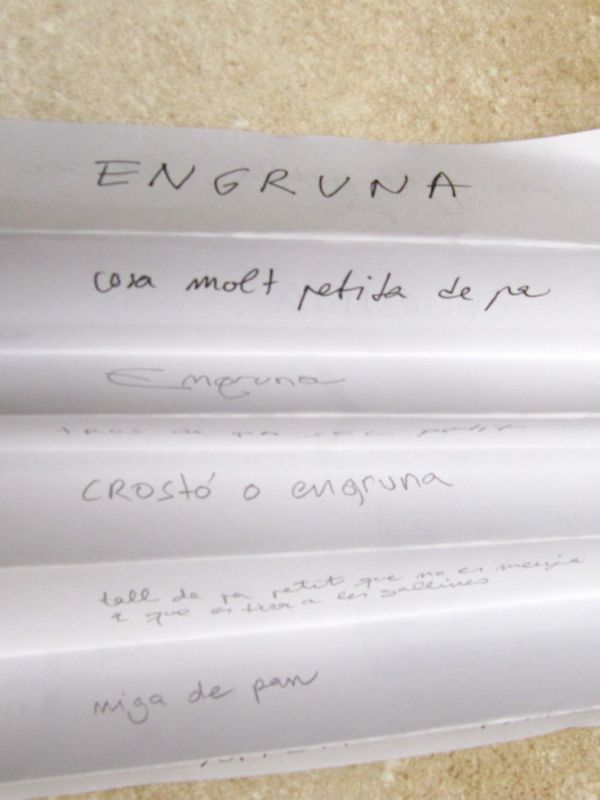 ENGRUNA
cosa molt petita de pa
Engruna
tros de pa sec petit
CROSTÓ o engruna
tall de pa petit que no es menja
i que es tira a les gallines
miga de pan